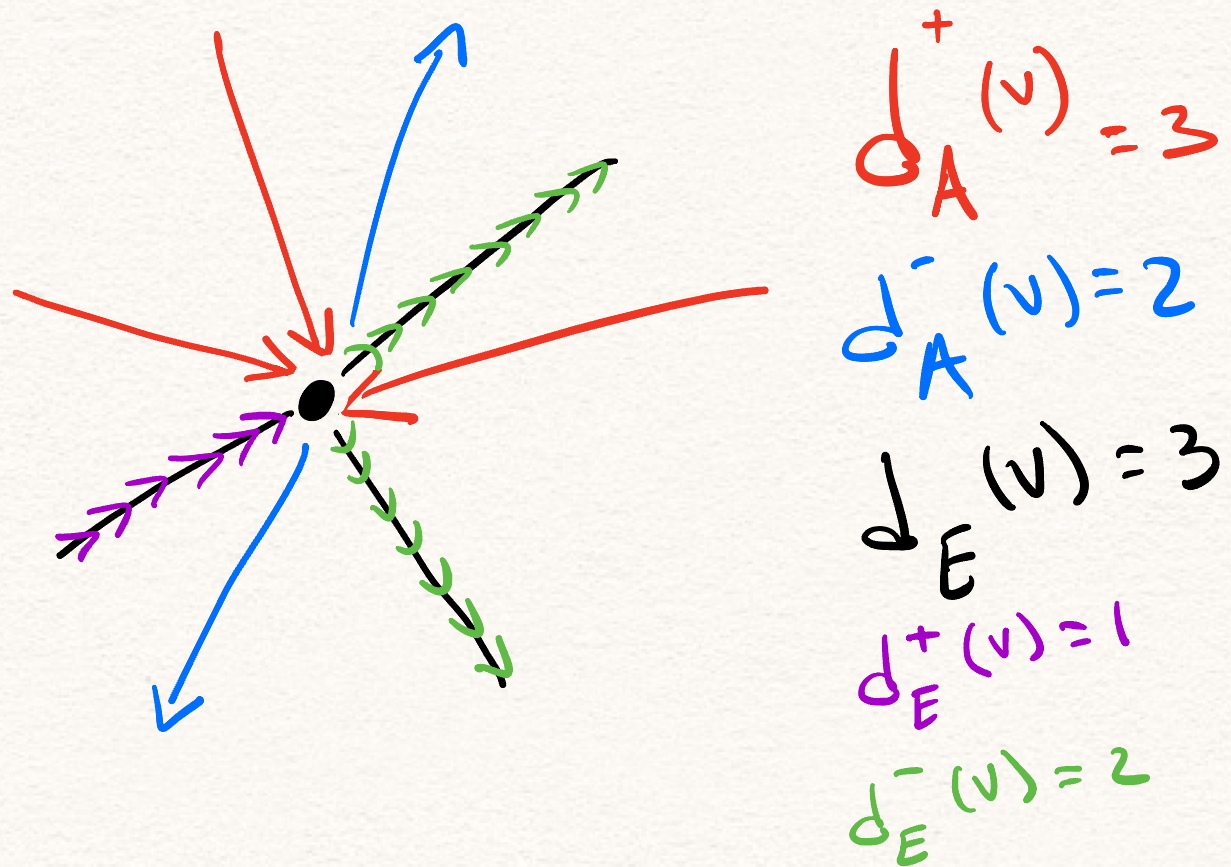 d_A^+ (v) = 3
d_A^- (v) = 2
d_E (v) = 3
d_E^+ (v) = 1
d_E^- (v) = 2